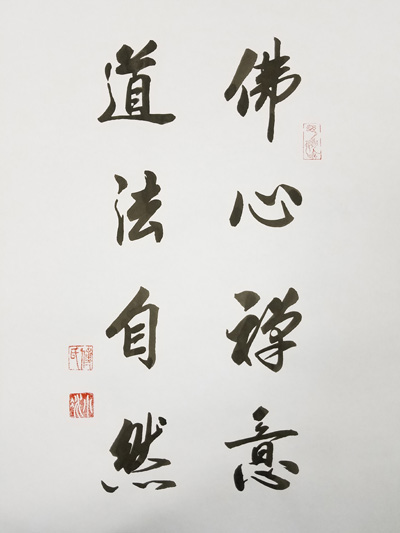 佛心禅意
道法自然